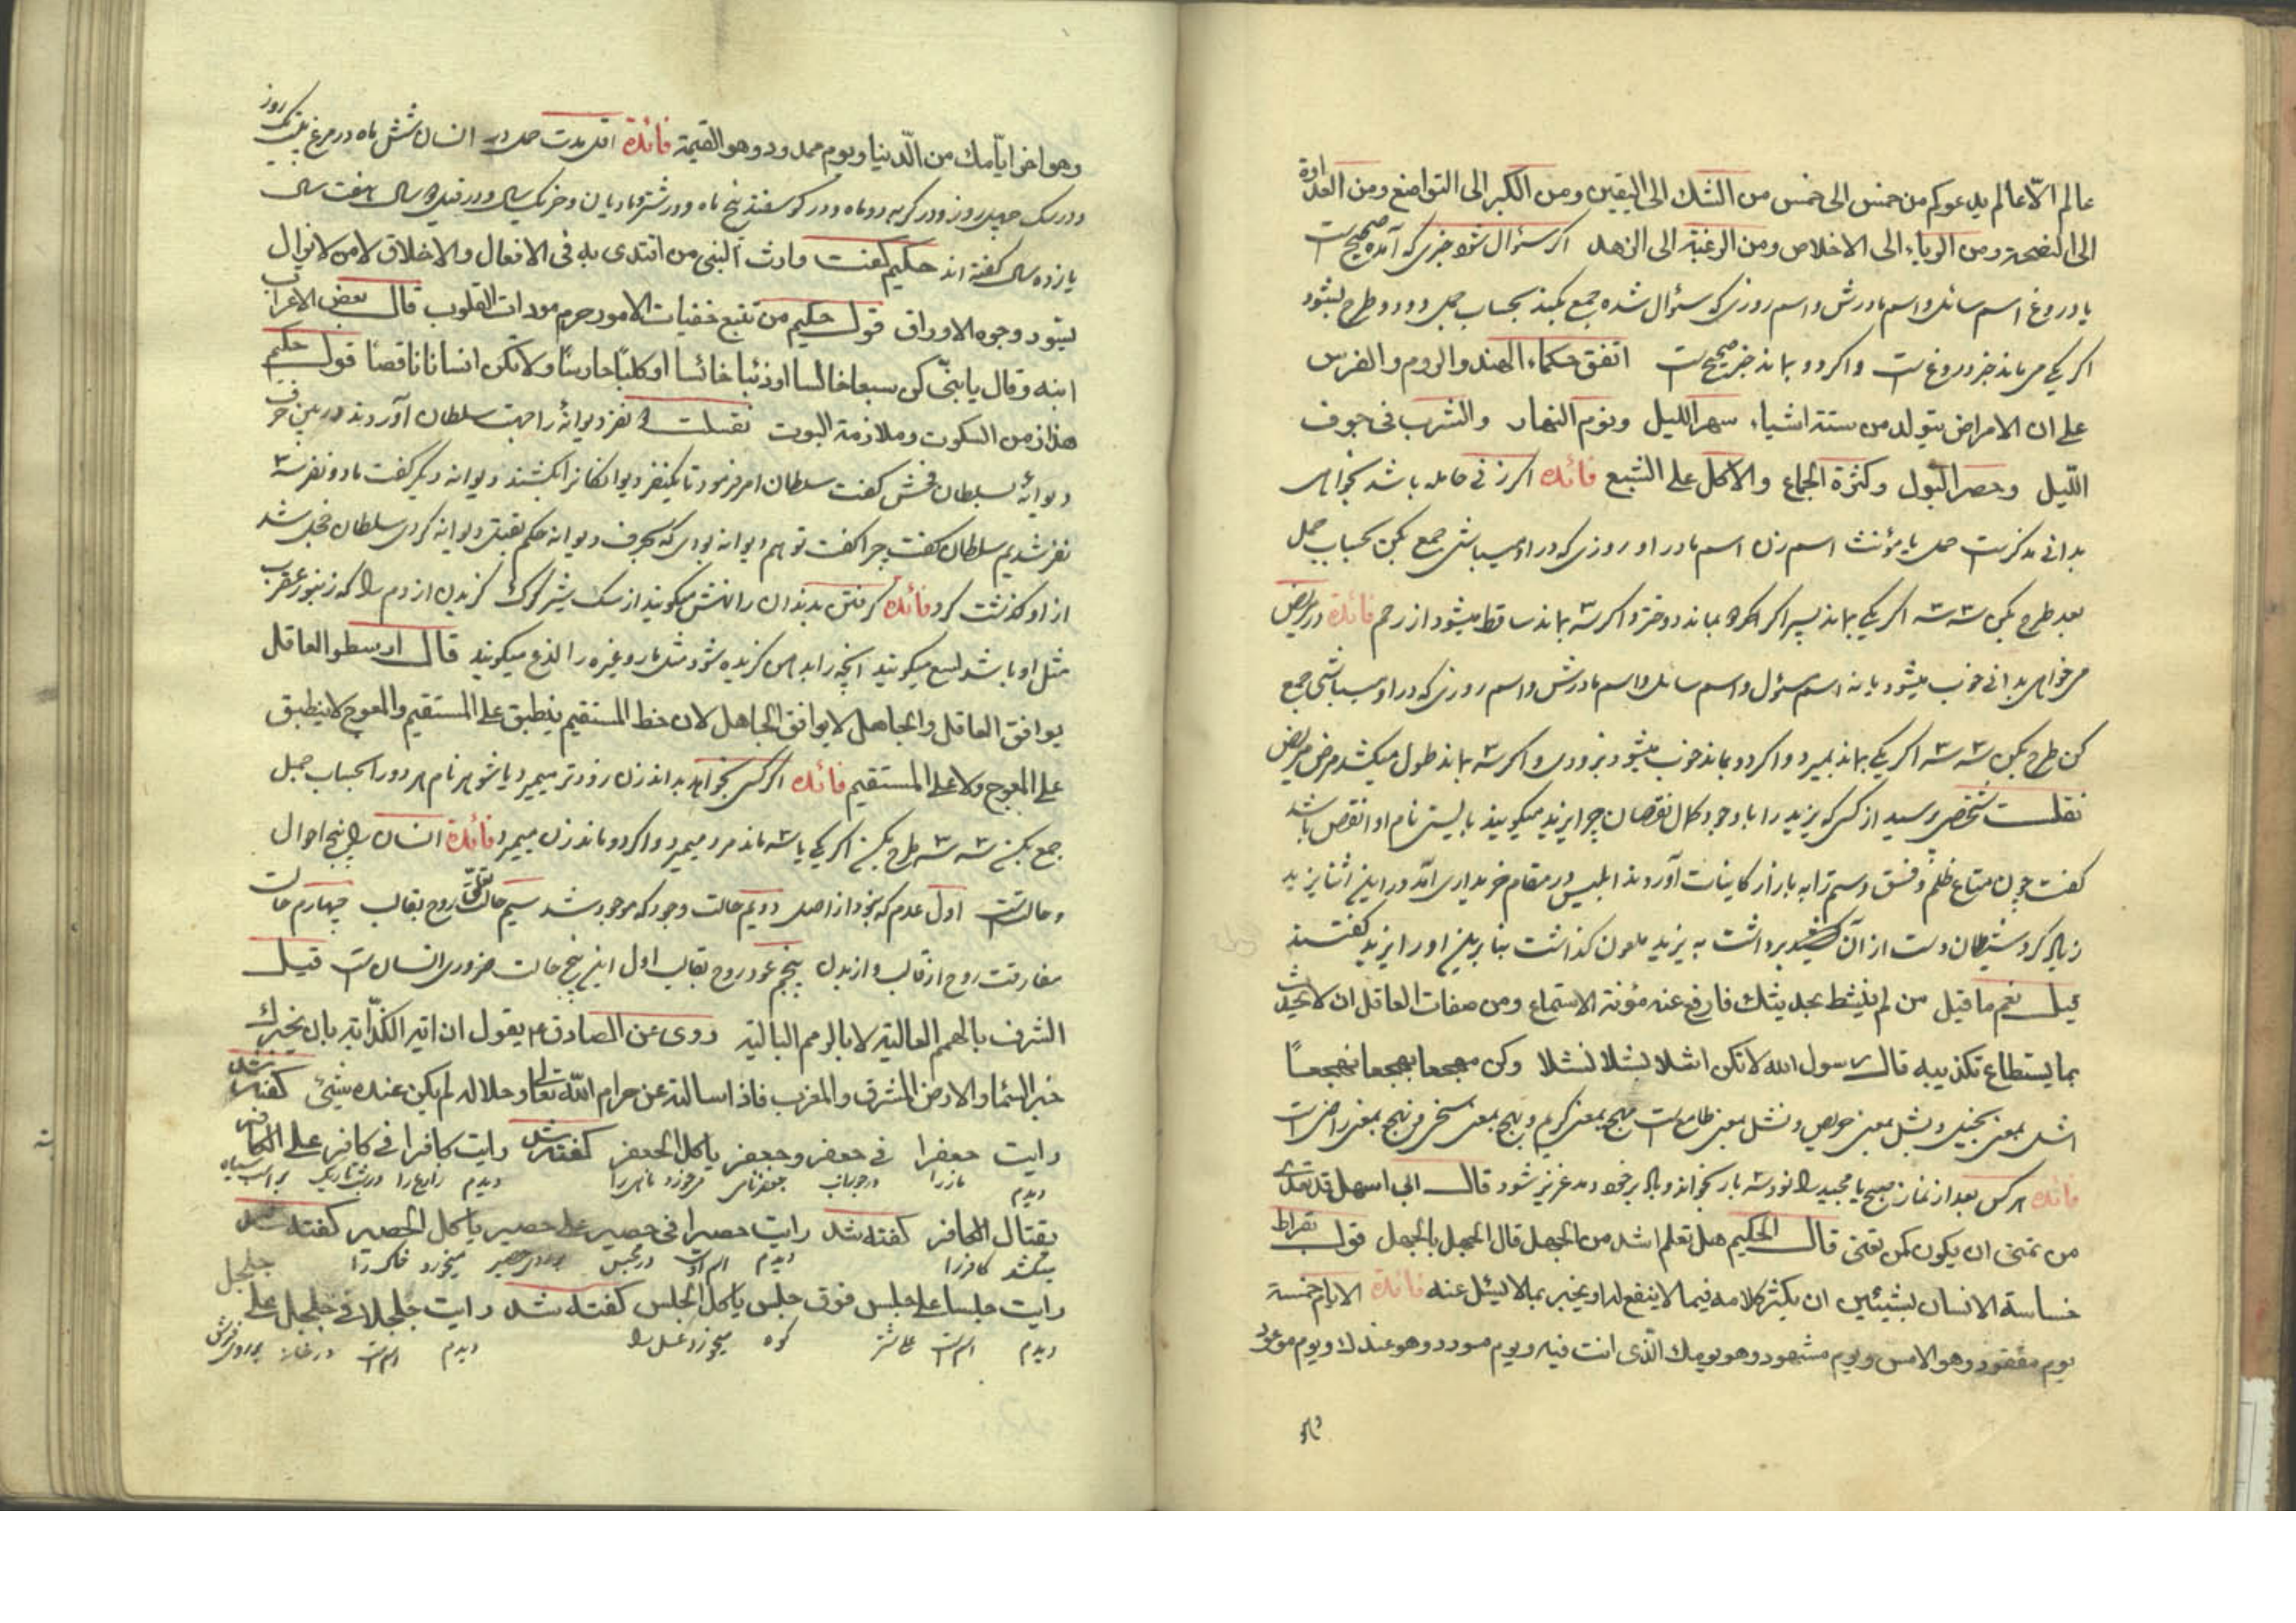 عالم الّا عالم يدعوكم من خمس الى خمس من الشك الى اليقين ومن الكبر الى التواضع ومن العداوة
الى النصيحة ومن الرياء الى الاخلاص ومن الرغبة الى الزهد اكر سئوال شود خبرى كه آمده صحيح است
يا دروغ اسم سائل و اسم مادرش و اسم روزى كه سئوال شده جمع بكند بحساب جمل دو دو طرح بشود
اكر يكى مى ماند خبر دروغ است و اكر دو بماند خبر صحيح است اتفق حكماء الهند والروم والفرس
على ان الامراض يتولد من ستة اشياء سهر الليل ونوم النهار والشرب فى جوف
الليل وحصر البول وكثرة الجماع والاكل على الشبع فائده اكر زنى حامله باشد بخواهى
بدانى مذكر است حمل يا مؤنث اسم زن اسم مادر او روزى كه در او ميباشى جمع بكن بحساب جمل
بعد طرح بكن سه سه اكر يكى بماند پسر اكر دو بماند دختر و اكر سه بماند ساقط ميشود از رحم فائدة در مريض
مى خواهى بدانى خوب ميشود يا نه اسم مسؤل و اسم سائل و اسم مادرش و اسم روزى كه در او ميباشى جمع
كن طرح بكن سه سه اكر يكى بماند بميرد و اكر دو بماند خوب ميشود بزودى و اكر سه بماند طول ميكشد مرض مريض
نقلست شخصى پرسيد از كسى كه يزيد را با وجود كمال نقصان چرا يزيد ميكويند بايستى نام او انقص باشد
كفت چون متاع ظلم و فسق و ستم را به بازار كاينات آوردند ابليس در مقام خريدارى آمد در اين اثنا يزيد
زياد كرد شيطان دست از آن برداشت به يزيد ملعون كذاشت بنا براين او را يزيد كفتند
قيل نعم ما قيل من لم ينشط بحديثك فارفع عنه مؤنة الاستماع ومن صفات العاقل ان لا يحدث
بما يستطاع تكذيبه قال رسول الله لا تكن اشلا بشلا نشلا وكن
اشل بمعنى بخيل و بشل بمعنى حريص و نشل بمعنى طامع است بمعنى كريم و بمعنى سخى و بمعنى راضى است
فائده هركس بعد از نماز صبح يا مجيد را نود و سه بار بخواند و باد بر خود دمد عزيز شود قال
من تمنى ان يكون كمن تعنى قال الحكيم هل تعلم اشد من الجهل قال الجهل بالجهل قول بقراط
خساسة الانسان بشيئين ان يكثر كلامه فيما لا ينفع له او يخبر بما لا يسئل عنه فائدة الايام خمسة
يوم مفقود وهو الامس ويوم مشهود وهو يومك الّذى انت فيه ويوم مورود وهو غدك ويوم موعود
وهو اخر ايّامك من الدّنيا ويوم ممدود وهو القيمة فائدة اقل مدت حمل در انسان شش ماه در مرغ بيست يك روز
و در سك چهل روز و در كربه دو ماه و در كوسفند پنج ماه و در شتر و ماديان و خر يك سال و در فيل سال هفت سال
يازده سال كفته اند حكيم كفت وارث النبى من اقتدى به فى الافعال والاخلاق لا من لا يزال
يسود وجوه الاوراق قول حكيم من تتبع خفيات الامور حرم مودات القلوب قال بعض الاعراب
ابنه وقال يا بنىّ كن سبعا خالسا او ذئبا خائسا او كلبا حارسا ولا تكن انسانا ناقصا قول حكيم
هذا زمن السكوت وملازمة البيوت نقلست نفر ديوانهٔ را جهت سلطان آوردند در بين حرف
ديوانهٔ بسلطان فحش كفت سلطان امر فرمود تا يكنفر ديوانكانرا بكشند ديوانه ديكر كفت ما دو نفر سه
نفر شديم سلطان كفت چرا كفت تو هم ديوانه بودى كه بحرف ديوانه حكم بقتل ديوانه كردى سلطان خجل شد
از او كذشت كرد فائده كرفتن بدندان را نهش ميكويند از سك شير كرك كزيدن از دم را كه زنبور عقرب
مثل او باشد لسع ميكويند انچه را بدهن كزيده شود مثل مار و غيره را لدغ ميكويند قال ارسطو العاقل
يوافق العاقل والجاهل لا يوافق الجاهل لان خط المستقيم ينطبق على المستقيم والمعوج لا ينطبق
على المعوج ولا على المستقيم فائده اكر كسى بخواهد بداند زن زودتر ميميرد يا شوهر نام هر دو را بحساب جمل
جمع بكنى سه سه طرح بكنى اكر يكى يا سه ماند مرد ميميرد و اكر دو ماند زن ميميرد فائدة انسان را پنج احوال
و حالتست اول عدم كه نبود از اصل دويم حالت وجود كه موجود شد سيم حالت تعلق روح بقالب چهارم حالت
مفارقت روح از قالب و از بدن پنجم عود روح بقالب اول اين پنج حالت ضرورى انسان است قيل
الشرف بالهمم العالية لا بالرمم البالية روى عن الصادق ع يقول ان اية الكذّاب بان يخبرك
خبر السّماء والارض المشرق والمغرب فاذا سالته عن حرام اللّه تعالى وحلاله لم يكن عنده شيئ كفته شد
رايت جعفرا فى جعفر وجعفر ياكل الجعفر كفته شد رايت كافرا فى كافر على الكافر
ديدم در جعفر نامى ميخورد ديدم زارع را در شب تاريك بر اسب سياه
يقتال الكافر كفته شد رايت حصيرا فى حصير على حصير ياكل الحصير كفته شد
ميكشد كافر را ديدم اسم است در مجلس بر روى حصير ميخورد
رايت جلسا على جلس فوق جلس ياكل الجلس كفته شد رايت جلجلا فى جلجل على جلجل
ديدم اسم است كوه ميخورد عسل را ديدم اسم است در خانه بر روى فرش